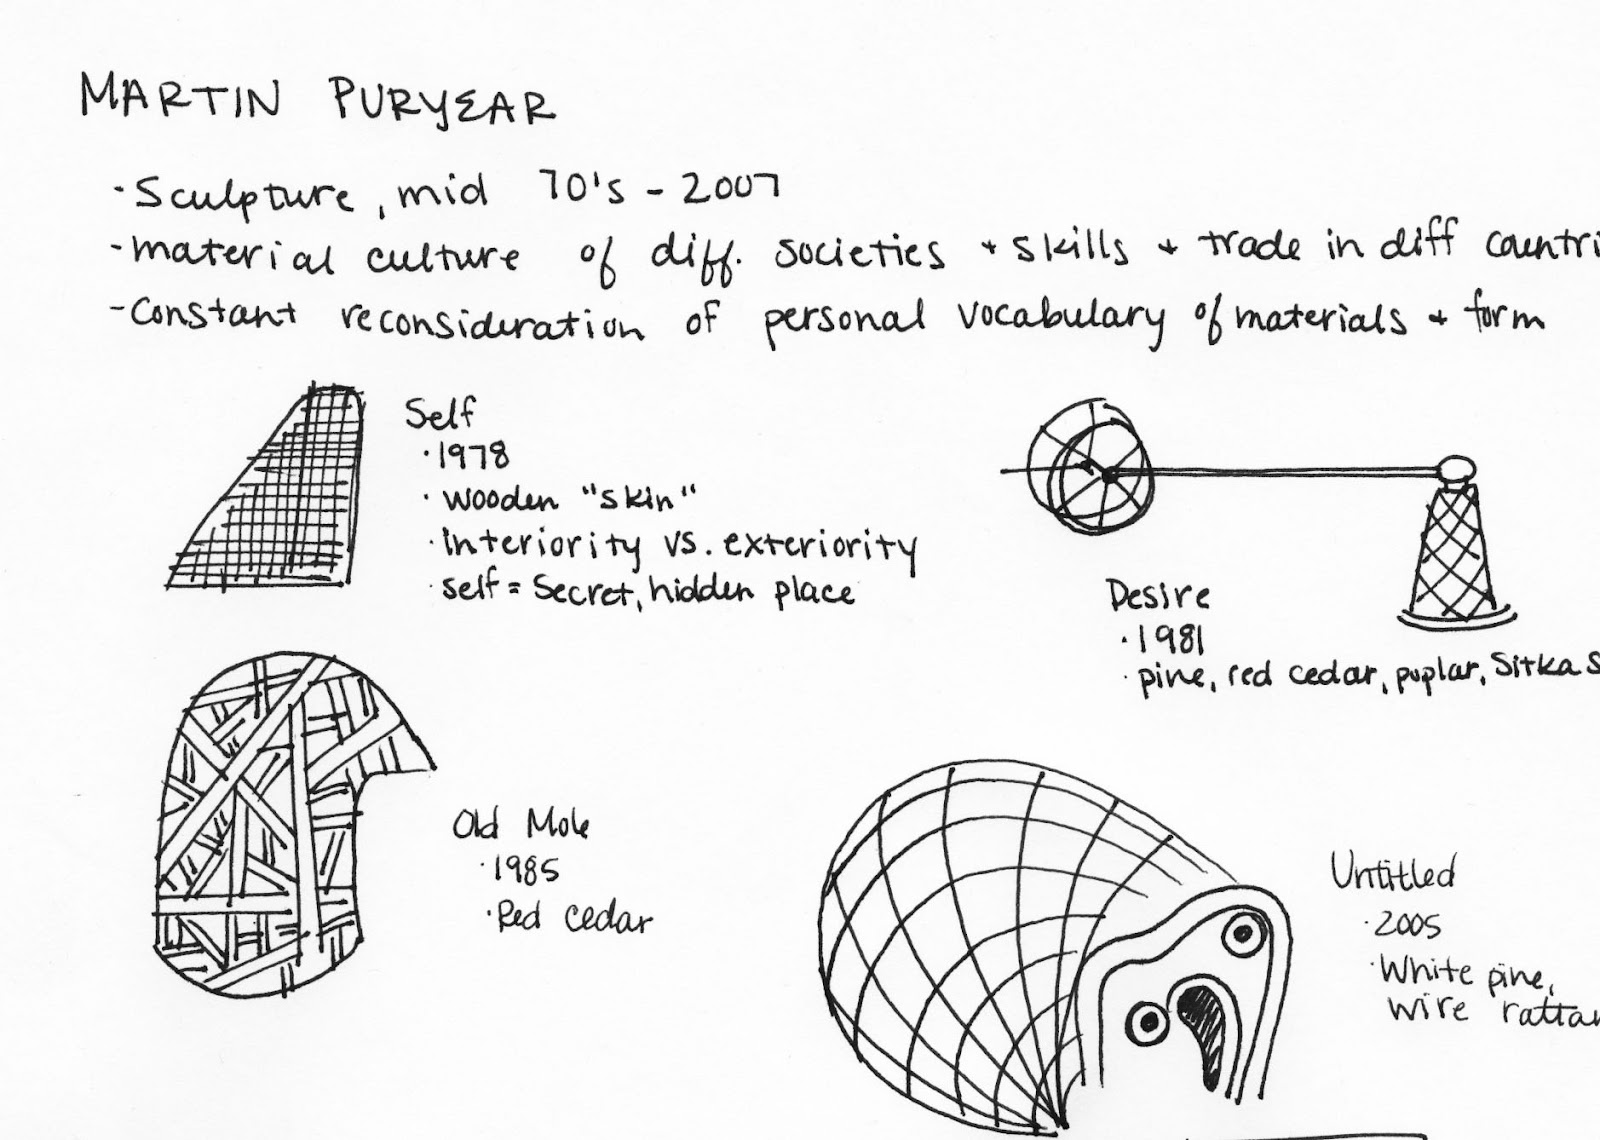 MARTIN PURYEAR
· Sculpture, mid 70's - 2007
- material culture of diff. societies + skills + trade in diff countri
- constant reconsideration of personal vocabulary of materials + form
Self
· 1978
· wooden "skin"
· interiority vs. exteriority
· self = secret, hidden place
Desire
· 1981
· pine, red cedar, poplar, Sitka S
Old Mole
· 1985
· Red cedar
Untitled
· 2005
· White pine,
wire rattan